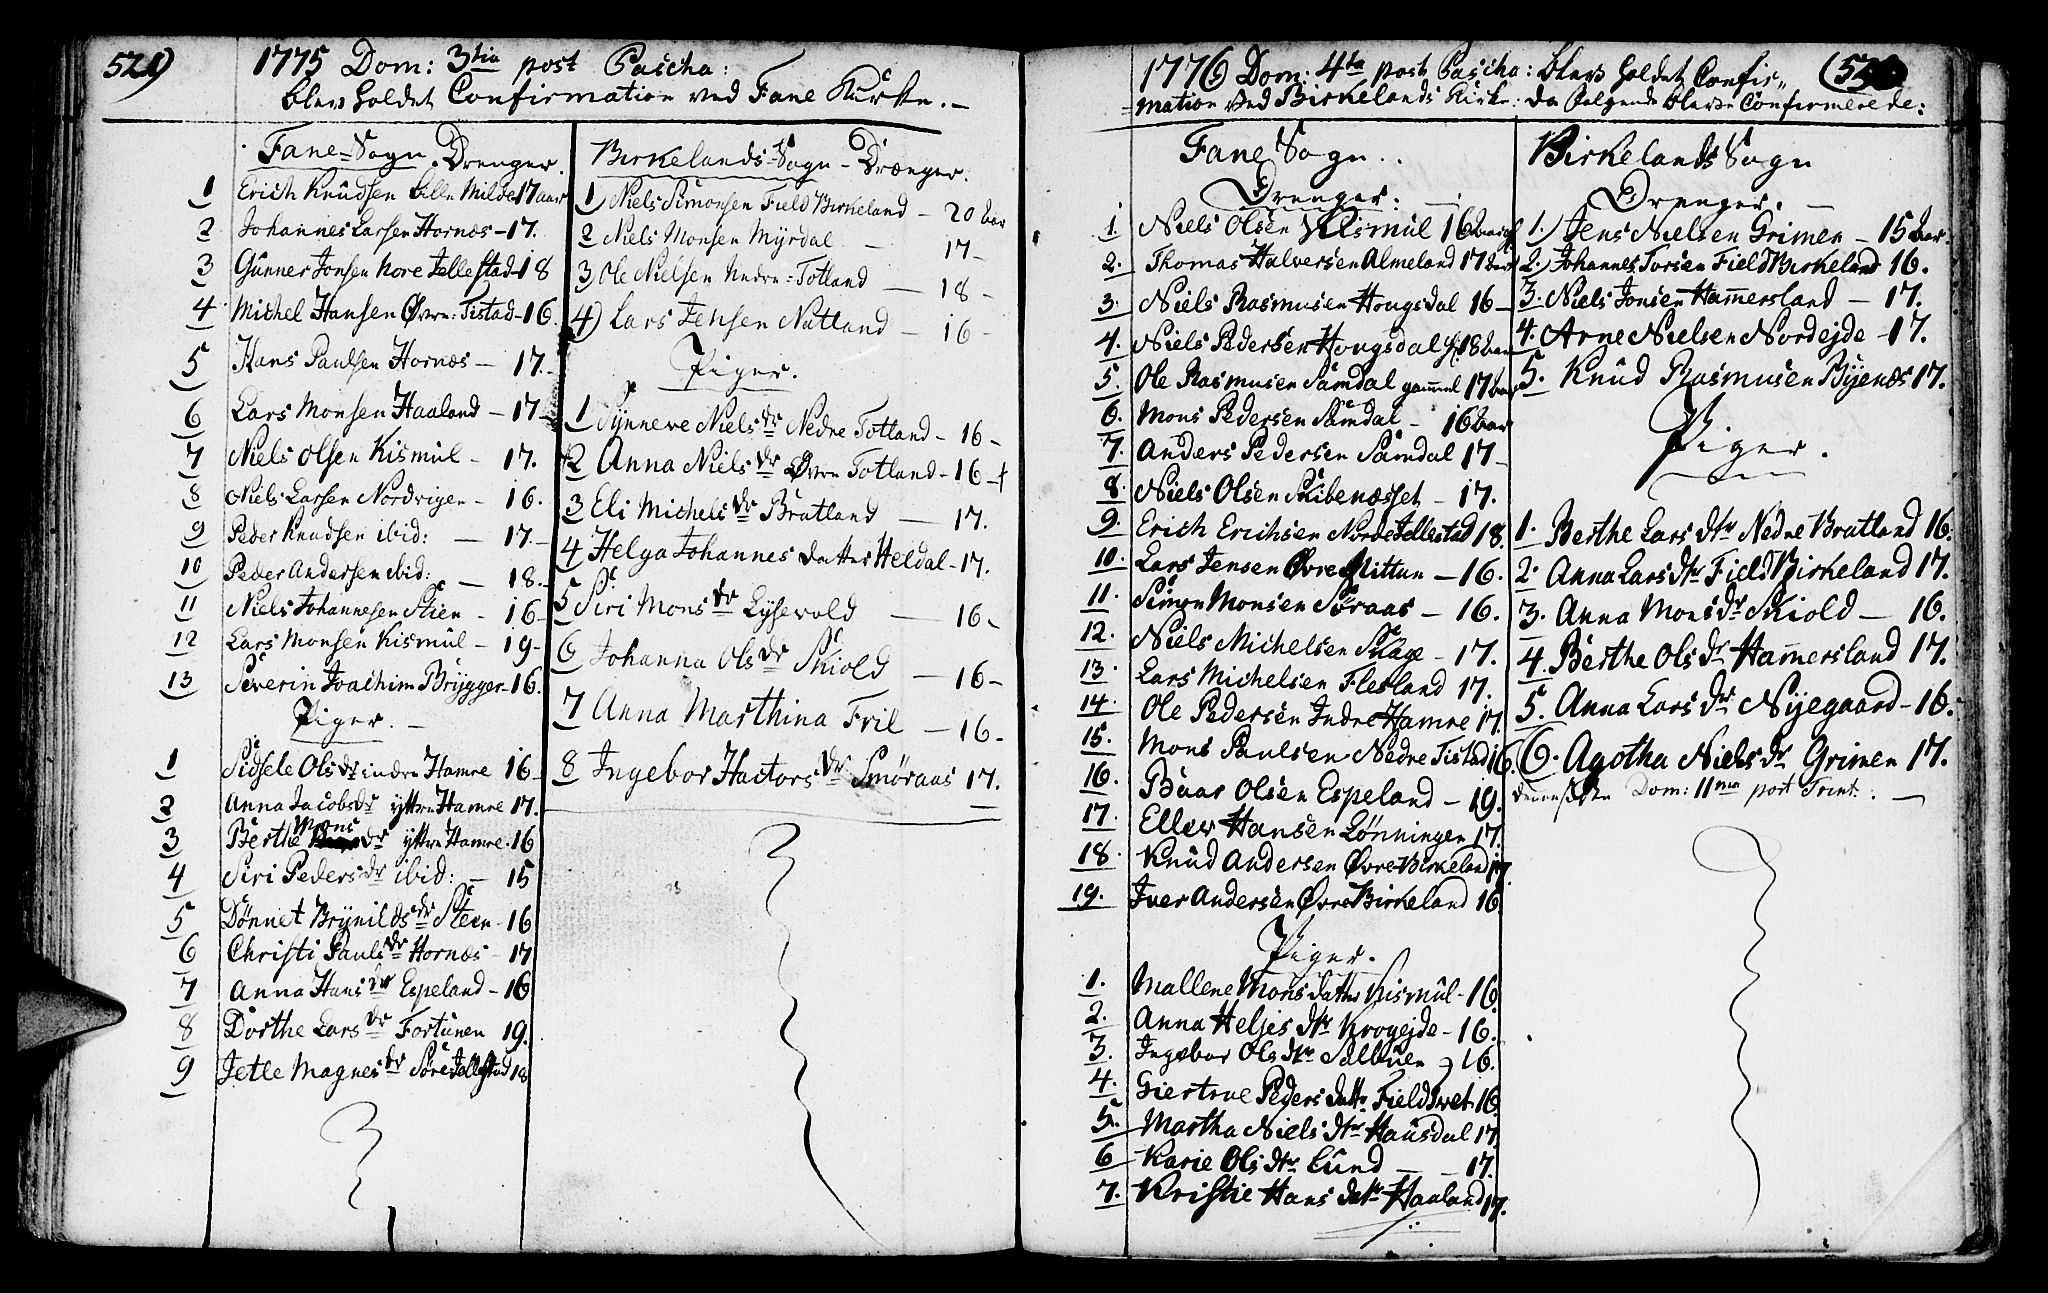 529)
1775 Dom: 3tia post Pascha:
blev holdet Confirmation ved Fane Kirke.
Fane-Sogn. Drenger.
1 Erich Knudsen Lille Milde 17 aar
2 Johannes Larsen Hornæs - 17.
3 Gunner Jonsen Nore Jellestad - 18
4 Michel Hansen Øvre: Tistad - 16.
5 Hans Paulsen Hornæs - 17.
6 Lars Monsen Haaland - 17
7 Niels Olsen Kismul - 17.
8 Niels Larsen Nordvigen - 16.
9 Peder Knudsen ibid: - 17.
10 Peder Andersen ibid: - 18.
11 Niels Johannesen Stien - 16
12 Lars Monsen Kismul - 19
13 Severin Joachim Brygger - 16.
Piger.
1 Sidsele Ols dr indre Hamre 16
2 Anna Jacobs dr yttre Hamre 17.
3 Berthe Mons dr yttre Hamre. 16
4 Siri Peders dr ibid: - 15
5 Dønnet Brynilds dr Steen - 16
6 Christi Pauls dr Hornæs - 17
7 Anna Hans dr Espeland - 16
8 Dorthe Lars dr Fortunen 19.
9 Jetle Magnes dr Søre Jellestad 18
Birkelands-Sogn - Drænger.
1) Niels Simonsen Field Birkeland - 20 aar
2 Niels Monsen Myrdal - 17
3 Ole Nielsen Nedre: Totland - 18
4) Lars Jensen Natland - 16
Piger.
1 Synneve Niels dr Nedre Totland - 16
2 Anna Niels dr Øvre Totland - 16
3 Eli Michels dr Bratland - 17.
4 Helga Johannes datter Heldal - 17.
5 Siri Mons dr Lysevold - 16
6 Johanna Ols dr Skiold - 16
7 Anna Marthina Friil - 16
8 Ingebor Hactors dr Smøraas 17.
1776 Dom: 4ta post Pascha: blev holdet Confir-
mation ved Birkelands Kirke: da følgende bleve Confirmerede:
Fane Sogn.
Drenger:
1. Niels Olsen Kismul 16 aar
2. Thomas Halversen Almeland 17 aar
3. Niels Rasmusen Hougsdal 16
4. Niels Pedersen Hougsdal 18 aar
5. Ole Rasmusen Samdal gammel 17 aar
6. Mons Pedersen Samdal - 16 aar
7. Anders Pedersen Samdal 17
8. Niels Olsen Skibenæsset - 17.
9. Erich Erichsen Nordre Jellestad 18.
10. Lars Jensen Øvre Tittun - 16.
11. Simon Monsen Søraas - 16.
12. Niels Michelsen Slage - 17.
13. Lars Michelsen Flesland 17.
14. Ole Pedersen Indre Hamre 17.
15. Mons Paulsen Nedre Tistad 16.
16. Baar Olsen Espeland - 19.
17. Eller Hansen Lønningen 17.
18. Knud Andersen Øvre Birkeland 17
19. Iver Andersen Øvre Birkeland 16
Piger.
1. Mallene Mons datter Kismul - 16
2. Anna Heljes dtr Krogejde - 16.
3. Ingebor Ols dtr Salbuen 16.
4. Giertrue Peders dattr Fieldtvet 16
5. Martha Niels dtr Hausdal 17
6 Karie Ols dtr Lund - 17.
7. Kristie Hans datr Haaland 17.
Birkelands Sogn
Drenger.
1. Jens Nielsen Grimen - 15 aar.
2. Johannes Torsen Field Birkeland 16.
3. Niels Jonsen Hammersland - 17.
4. Arne Nielsen Nordejde - 17.
5. Knud Rasmusen Byenæs 17.
Piger.
1. Berthe Lars dtr Nedre Bratland 16.
2. Anna Lars dtr Field Birkeland 17.
3. Anna Mons dr Skiold - 16.
4. Berthe Ols dr Hammersland 17.
5. Anna Lars dr Nyegaard - 16.
6. Agotha Niels dr Grimen 17.
Dom: 11ma post Trint: